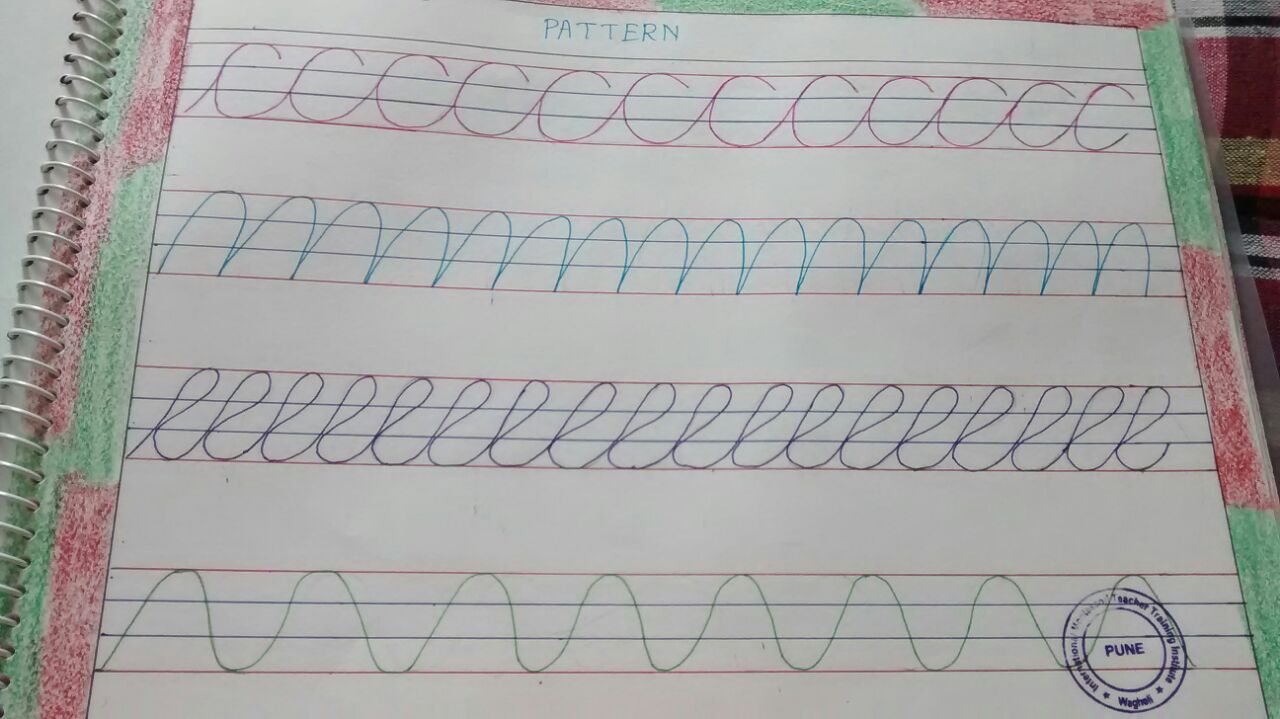 PATTERN
International Montessori Teacher Training Institute
PUNE
★ Wagholi ★